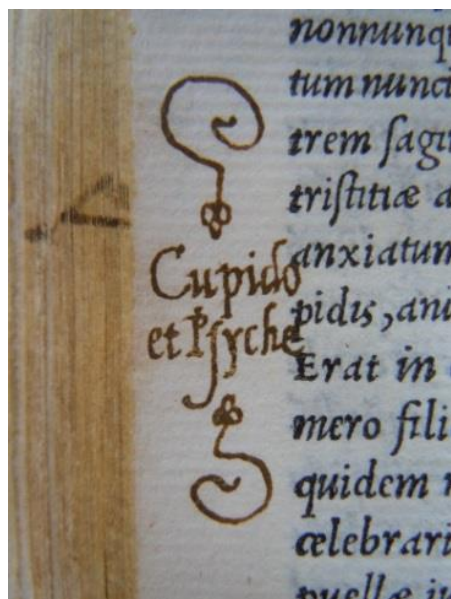 Cupido
et Psyche
nonnunqu
tum nunci
trem sagit
tristitiæ a
anxiatum
pidis, ani
Erat in
mero fili
quidem
celebrari
puellæ